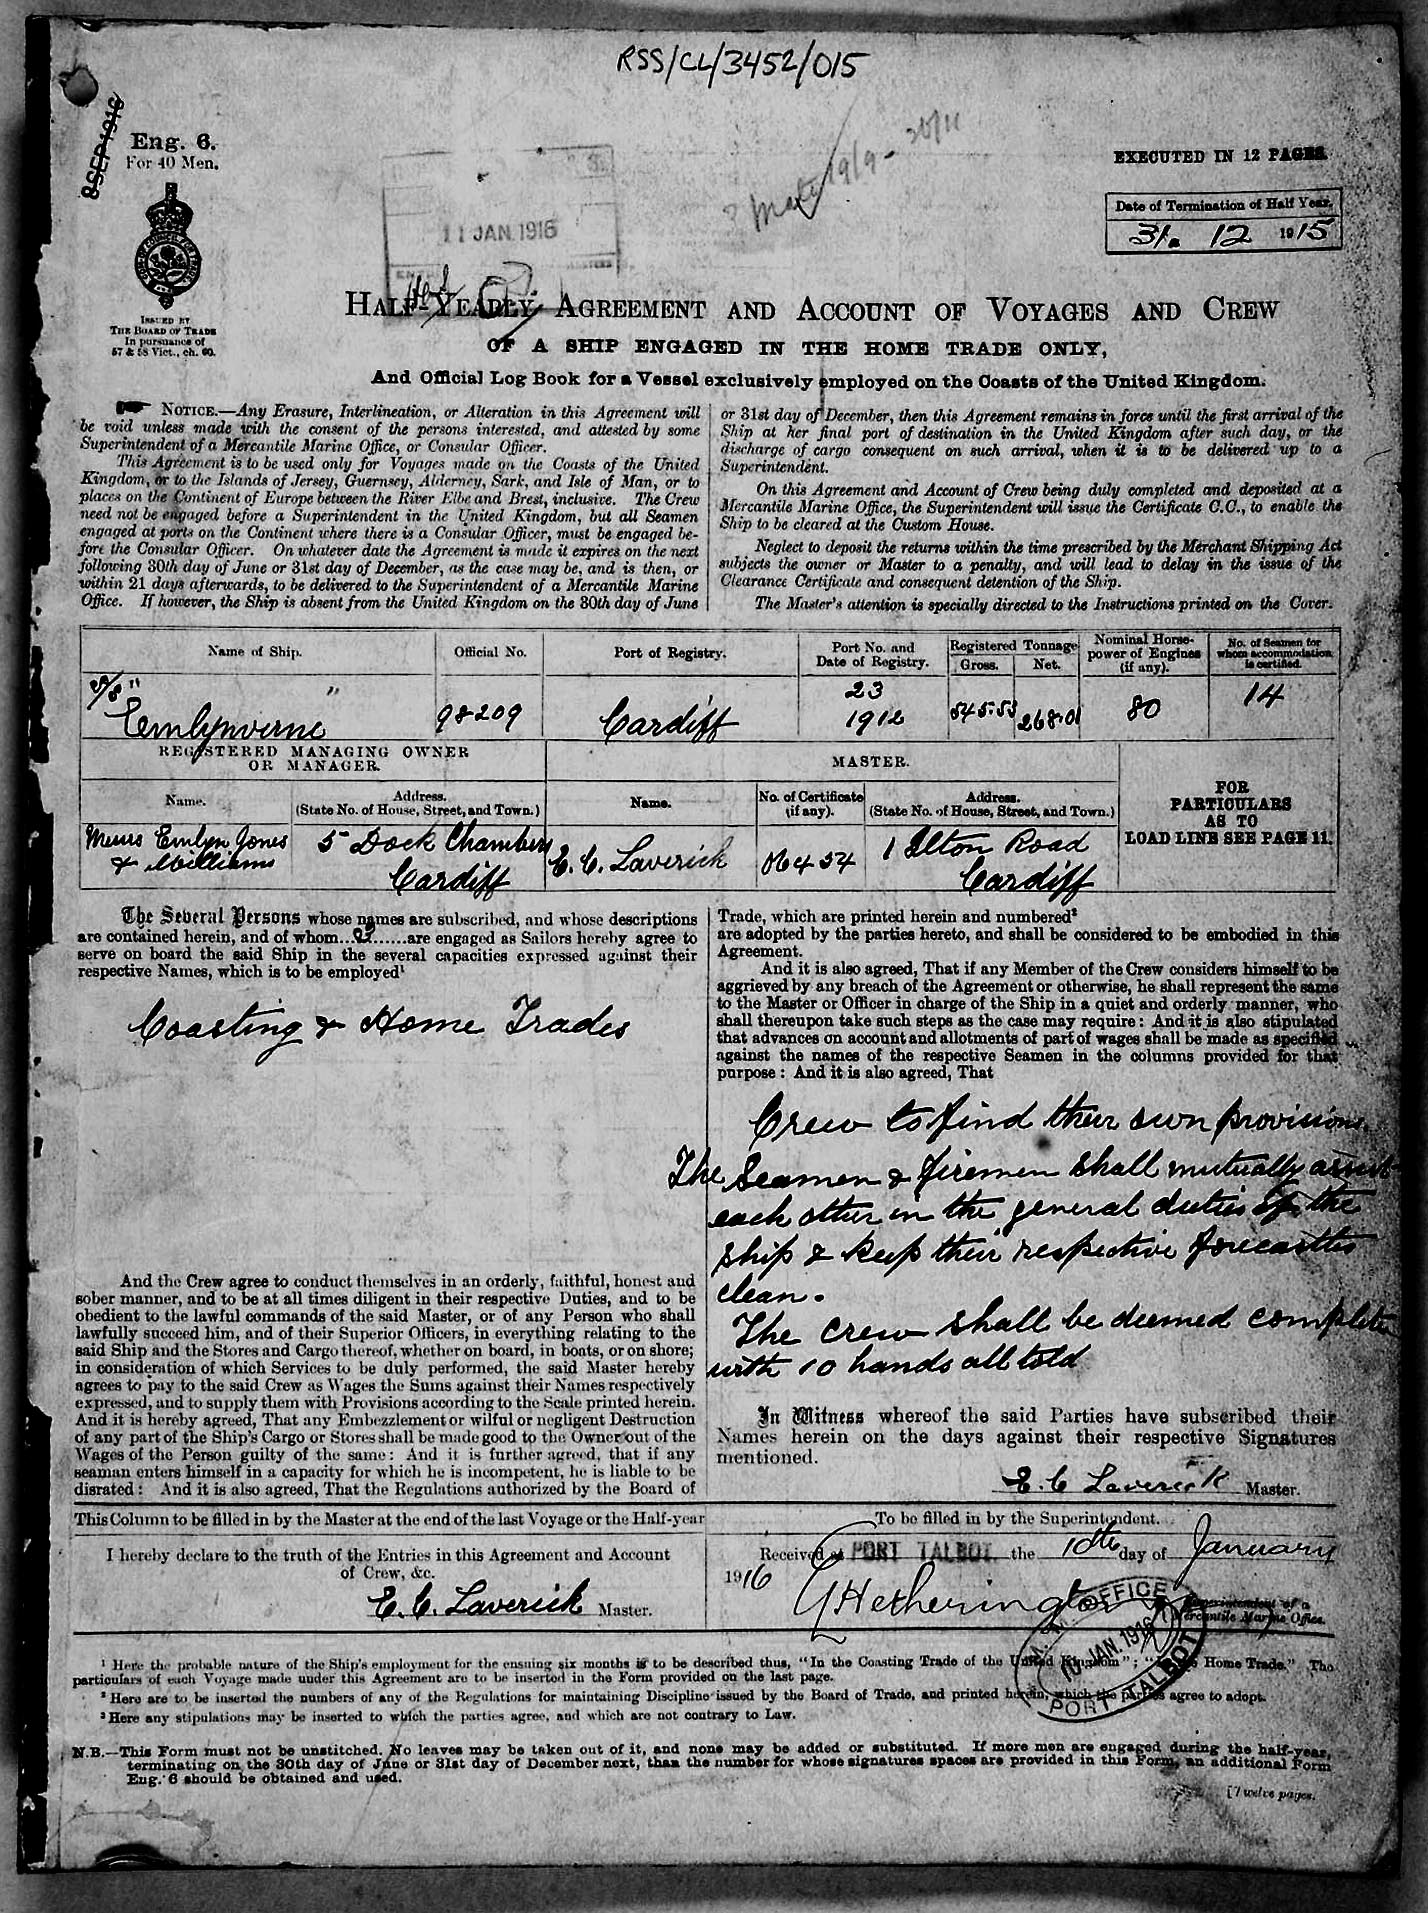 RSS/CL/3452/015
8 SEP 1916
Eng. 6.
For 40 Men.
EXECUTED IN 12 PAGES.
19/9 - 26/11
Date of Termination of Half Year.
31. 12 1915
11 JAN. 1916
ISSUED BY
THE BOARD OF TRADE
In pursuance of
57 & 58 Vict., ch. 60.
HALF-YEARLY AGREEMENT AND ACCOUNT OF VOYAGES AND CREW
OF A SHIP ENGAGED IN THE HOME TRADE ONLY,
And Official Log Book for a Vessel exclusively employed on the Coasts of the United Kingdom.
NOTICE.—Any Erasure, Interlineation, or Alteration in this Agreement will
be void unless made with the consent of the persons interested, and attested by some
Superintendent of a Mercantile Marine Office, or Consular Officer.
This Agreement is to be used only for Voyages made on the Coasts of the United
Kingdom, or to the Islands of Jersey, Guernsey, Alderney, Sark, and Isle of Man, or to
places on the Continent of Europe between the River Elbe and Brest, inclusive. The Crew
need not be engaged before a Superintendent in the United Kingdom, but all Seamen
engaged at ports on the Continent where there is a Consular Officer, must be engaged be-
fore the Consular Officer. On whatever date the Agreement is made it expires on the next
following 30th day of June or 31st day of December, as the case may be, and is then, or
within 21 days afterwards, to be delivered to the Superintendent of a Mercantile Marine
Office. If however, the Ship is absent from the United Kingdom on the 30th day of June
or 31st day of December, then this Agreement remains in force until the first arrival of the
Ship at her final port of destination in the United Kingdom after such day, or the
discharge of cargo consequent on such arrival, when it is to be delivered up to a
Superintendent.
On this Agreement and Account of Crew being duly completed and deposited at a
Mercantile Marine Office, the Superintendent will issue the Certificate C.C., to enable the
Ship to be cleared at the Custom House.
Neglect to deposit the returns within the time prescribed by the Merchant Shipping Act
subjects the owner or Master to a penalty, and will lead to delay in the issue of the
Clearance Certificate and consequent detention of the Ship.
The Master's attention is specially directed to the Instructions printed on the Cover.
Name of Ship. Official No. Port of Registry. Port No. and Date of Registry. Registered Tonnage Gross. Net. Nominal Horse-power of Engines (if any). No. of Seamen for whom accommodation is certified.
S/S " " Emlynverne 98209 Cardiff 23 1912 545.53 268.01 80 14
REGISTERED MANAGING OWNER
OR MANAGER.
MASTER.
Name. Address. (State No. of House, Street, and Town.) Name. No. of Certificate (if any). Address. (State No. of House, Street, and Town.)
FOR
PARTICULARS
AS TO
LOAD LINE SEE PAGE 11.
Messrs Emlyn Jones & Williams 5 Dock Chambers Cardiff E. C. Laverick 06454 1 Ilton Road Cardiff
The Several Persons whose names are subscribed, and whose descriptions
are contained herein, and of whom......are engaged as Sailors hereby agree to
serve on board the said Ship in the several capacities expressed against their
respective Names, which is to be employed¹
Coasting & Home Trades
And the Crew agree to conduct themselves in an orderly, faithful, honest and
sober manner, and to be at all times diligent in their respective Duties, and to be
obedient to the lawful commands of the said Master, or of any Person who shall
lawfully succeed him, and of their Superior Officers, in everything relating to the
said Ship and the Stores and Cargo thereof, whether on board, in boats, or on shore;
in consideration of which Services to be duly performed, the said Master hereby
agrees to pay to the said Crew as Wages the Sums against their Names respectively
expressed, and to supply them with Provisions according to the Scale printed herein.
And it is hereby agreed, That any Embezzlement or wilful or negligent Destruction
of any part of the Ship's Cargo or Stores shall be made good to the Owner out of the
Wages of the Person guilty of the same: And it is further agreed, that if any
seaman enters himself in a capacity for which he is incompetent, he is liable to be
disrated: And it is also agreed, That the Regulations authorized by the Board of
Trade, which are printed herein and numbered²
are adopted by the parties hereto, and shall be considered to be embodied in this
Agreement.
And it is also agreed, That if any Member of the Crew considers himself to be
aggrieved by any breach of the Agreement or otherwise, he shall represent the same
to the Master or Officer in charge of the Ship in a quiet and orderly manner, who
shall thereupon take such steps as the case may require: And it is also stipulated
that advances on account and allotments of part of wages shall be made as specified
against the names of the respective Seamen in the columns provided for that
purpose: And it is also agreed, That
Crew to find their own provisions
The Seamen & firemen shall mutually assist
each other in the general duties of the
ship & keep their respective forecastles
clean.
The crew shall be deemed complete
with 10 hands all told
In Witness whereof the said Parties have subscribed their
Names herein on the days against their respective Signatures
mentioned.
E. C. Laverick Master.
This Column to be filled in by the Master at the end of the last Voyage or the Half-year
I hereby declare to the truth of the Entries in this Agreement and Account
of Crew, &c.
E. C. Laverick Master.
To be filled in by the Superintendent.
Received at PORT TALBOT the 10th day of January
1916
G Hetherington
Superintendent of a
Mercantile Marine Office.
M. M. OFFICE
10 JAN. 1916
PORT TALBOT
¹ Here the probable nature of the Ship's employment for the ensuing six months is to be described thus, "In the Coasting Trade of the United Kingdom"; " Home Trade." The
particulars of each Voyage made under this Agreement are to be inserted in the Form provided on the last page.
² Here are to be inserted the numbers of any of the Regulations for maintaining Discipline issued by the Board of Trade, and printed herein, which the parties agree to adopt.
³ Here any stipulations may be inserted to which the parties agree, and which are not contrary to Law.
N.B.—This Form must not be unstitched. No leaves may be taken out of it, and none may be added or substituted. If more men are engaged during the half-year,
terminating on the 30th day of June or 31st day of December next, than the number for whose signatures spaces are provided in this Form, an additional Form
Eng. 6 should be obtained and used.
[Twelve pages.